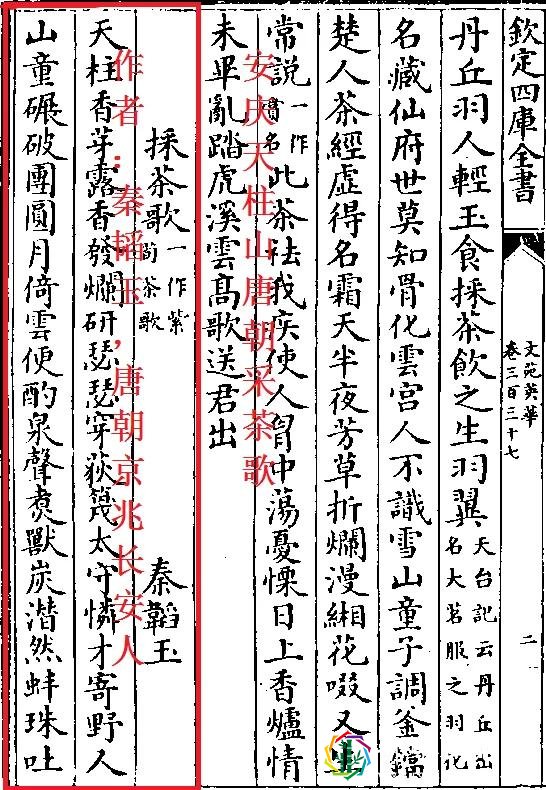 欽定四庫全書
文苑英華
卷三百三十七
二
丹丘羽人輕玉食採茶飲之生羽翼天台記云丹丘出名大茗服之羽化
名藏仙府世莫知骨化雲宮人不識雪山童子調金鐺
楚人茶經虛得名霜天半夜芳草折爛漫緗花啜又生
常說一作賞名此茶祛我疾使人胷中蕩憂慄日上香爐情
未畢亂踏虎溪雲髙歌送君出
安庆天柱山唐朝采茶歌
採茶歌一作紫筍茶歌 秦韜玉
作者：秦韬玉，唐朝京兆长安人
天柱香芽露香發爛研瑟瑟穿荻篾太守憐才寄野人
山童碾破團圓月倚雲便酌泉聲煑獸炭潛然蚌珠吐